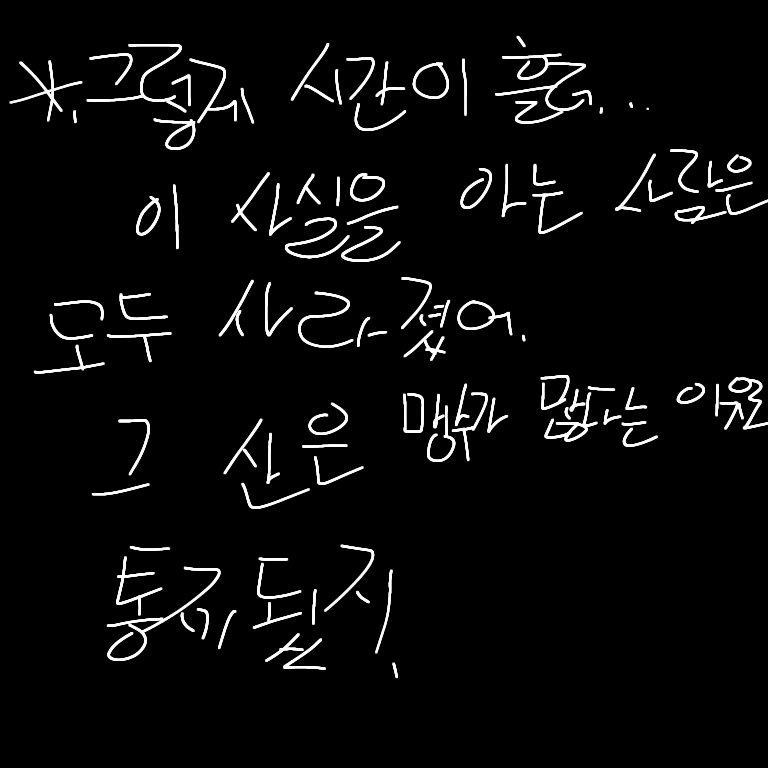 *. 그렇게 시간이 흘러...
이 사실을 아는 사람은
모두 사라졌어.
그 산은 맹수가 많다는 이유로
통제됐지.